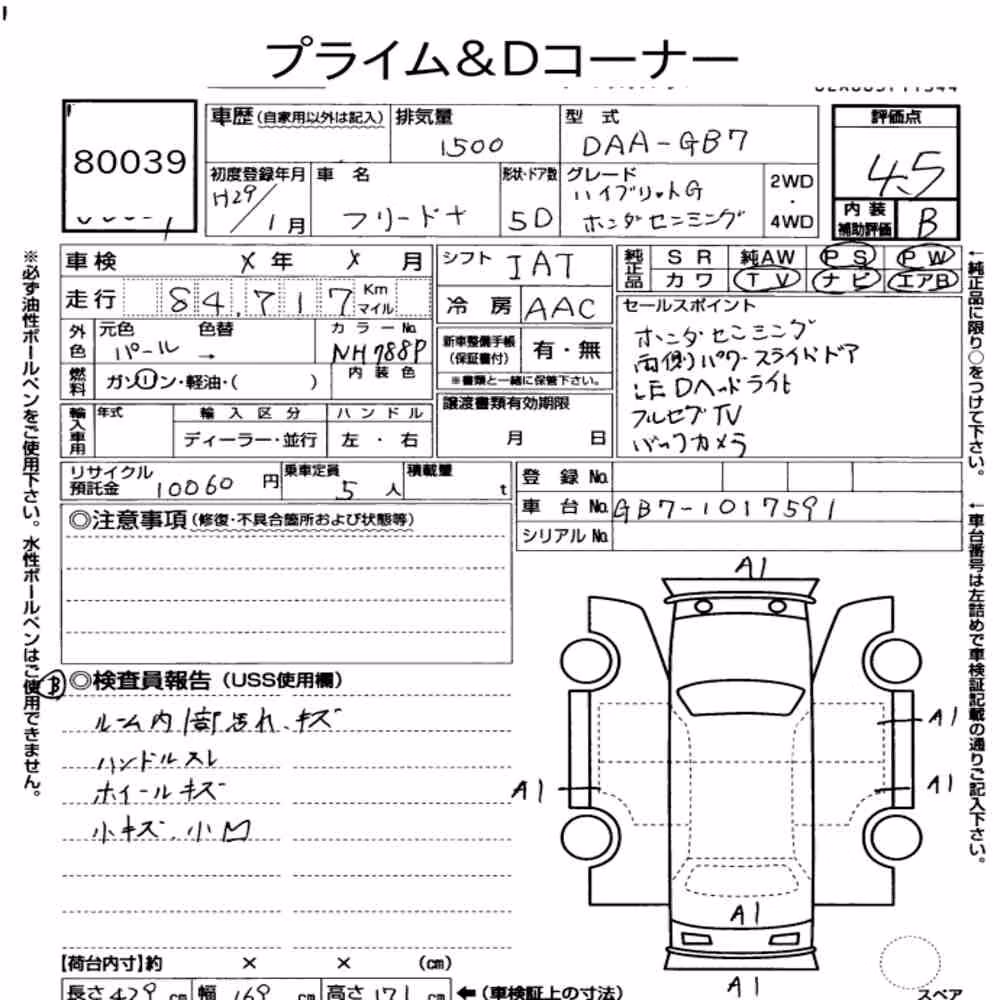 プライム&Dコーナー
80039
車歴 (自家用以外は記入)
排気量
1500
型式
DAA-GB7
評価点
4.5
初度登録年月
H29/1月
車名
フリード+
形状・ドア数
5D
グレード
ハイブリットG
ホンダセンシング
2WD
・
4WD
内装
補助評価
B
車検 X 年 X 月
シフト IAT
純正品 SR 純AW PS PW
カワ TV ナビ エアB
走行 84,717 Km
マイル
冷房 AAC
セールスポイント
ホンダセンシング
両側パワースライドドア
LEDヘッドライト
フルセグTV
バックカメラ
外色 元色 色替 カラーNo.
パール → NH788P
新車整備手帳
(保証書付)
有・無
※書類と一緒に保管下さい。
燃料 ガソリン・軽油・( )
内装色
輸入車用 年式 輸入区分 ハンドル
ディーラー・並行 左・右
譲渡書類有効期限
月 日
リサイクル
預託金 10060 円
乗車定員
5 人
積載量
t
登録No.
車台No. GB7-1017591
シリアルNo.
◎注意事項 (修復・不具合箇所および状態等)
B ◎検査員報告 (USS使用欄)
ルーム内1部汚れ、キズ
ハンドルスレ
ホイールキズ
小キズ、小凹
A1
A1
A1
A1
A1
A1
【荷台内寸】約 × × (cm)
長さ 429 cm 幅 169 cm 高さ 171 cm ←(車検証上の寸法)
スペア
※必ず油性ボールペンをご使用下さい。水性ボールペンはご使用できません。
←純正品に限り○をつけて下さい。
←車台番号は左詰めで車検証記載の通りご記入下さい。